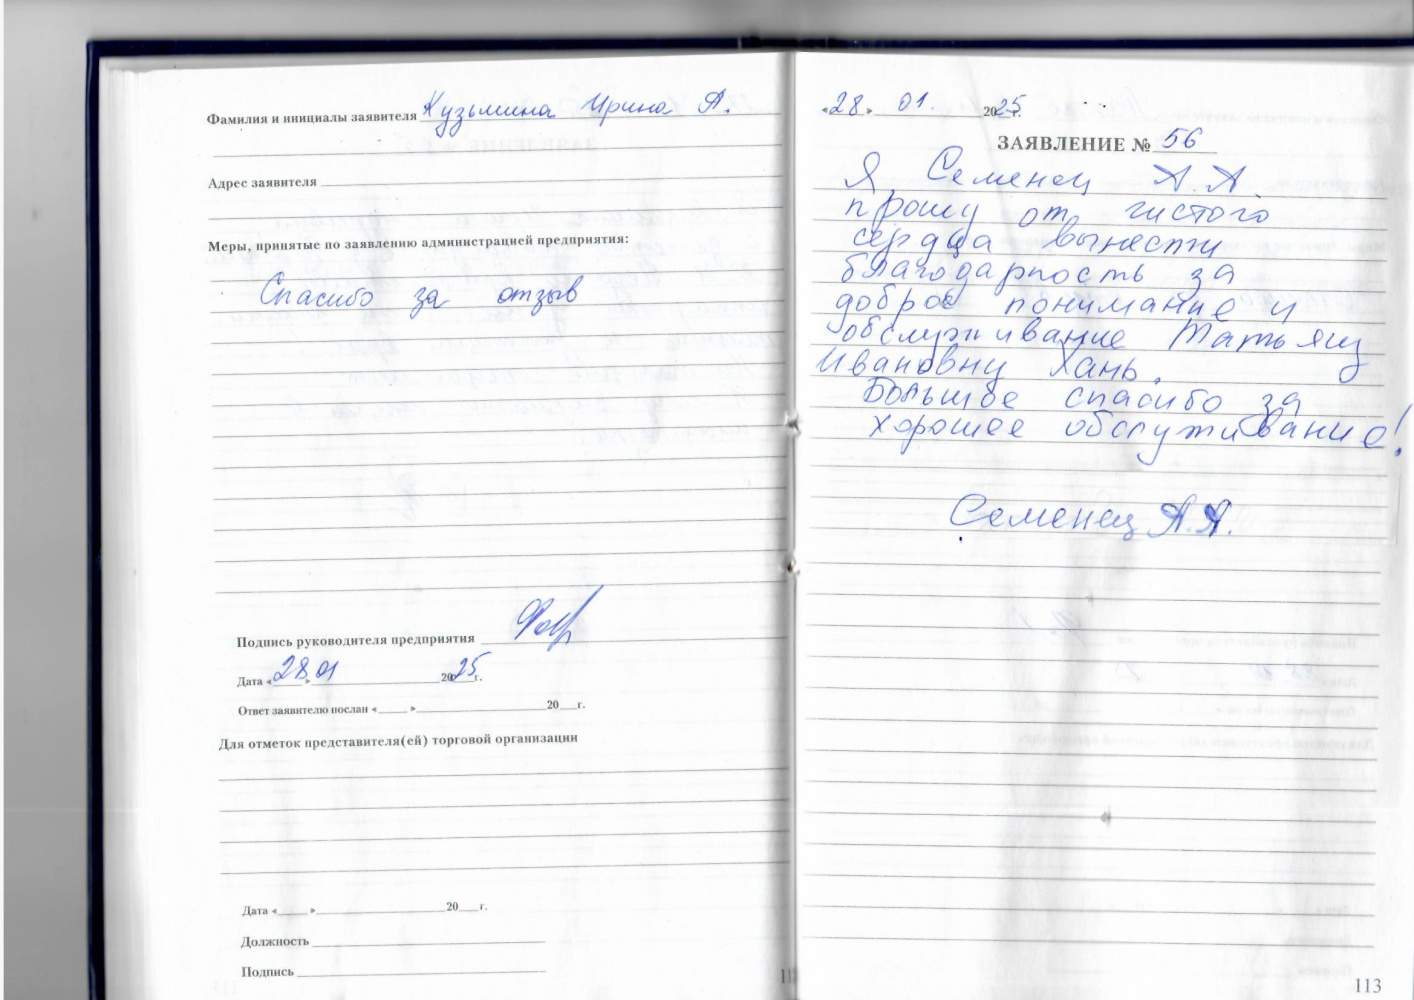 Фамилия и инициалы заявителя Кузьмина Ирина А.
Адрес заявителя
Меры, принятые по заявлению администрацией предприятия:
Спасибо за отзыв
Подпись руководителя предприятия
Дата «28» 01 2025г.
Ответ заявителю послан «____» ____ 20__г.
Для отметок представителя(ей) торговой организации
Дата «____» ____ 20__г.
Должность
Подпись
«28» 01. 2025г.
ЗАЯВЛЕНИЕ № 56
Я, Семенец А.А.
прошу от чистого
сердца вынести
благодарность за
доброе понимание и
обслуживание Татьяну
Ивановну Хань.
Большое спасибо за
хорошее обслуживание!
Семенец А.А.
113